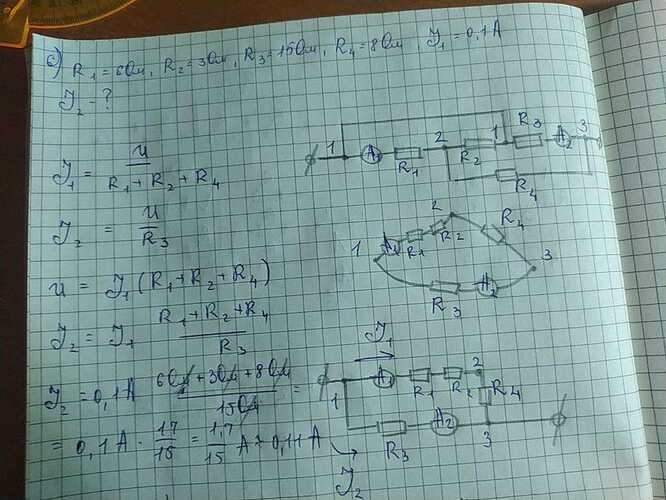 6) R₁=6Ом, R₂=3Ом, R₃=15Ом, R₄=8Ом, J₁=0,1А
J₂-?
J₁ = U / (R₁+R₂+R₄)
J₂ = U / R₃
U = J₁(R₁+R₂+R₄)
J₂ = J₁ (R₁+R₂+R₄) / R₃
J₂ = 0,1А (6Ом+3Ом+8Ом) / 15Ом =
= 0,1А · 17/15 = 1,7/15 А ≈ 0,11А
1 A₁ R₁ 2 R₂ 1 R₃ A₂ 3
R₄
1 A₁ R₁ R₂ 2 R₄ 3
R₃ A₂
J₁
1 A₁ R₁ R₂ 2 R₄
R₃ A₂ 3
J₂